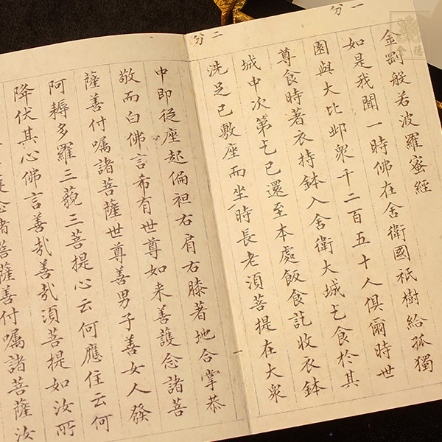 一分
金剛般若波羅蜜經
如是我聞一時佛在舍衛國祇樹給孤獨
園與大比邱衆千二百五十人俱爾時世
尊食時著衣持鉢入舍衛大城乞食於其
城中次第乞已還至本處飯食訖收衣鉢
洗足已敷座而坐時長老須菩提在大衆
二分
中即從座起偏袒右肩右膝著地合掌恭
敬而白佛言希有世尊如来善護念諸菩
薩善付囑諸菩薩世尊善男子善女人發
阿耨多羅三藐三菩提心云何應住云何
降伏其心佛言善哉善哉須菩提如汝所
念諸菩薩善付囑諸菩薩汝